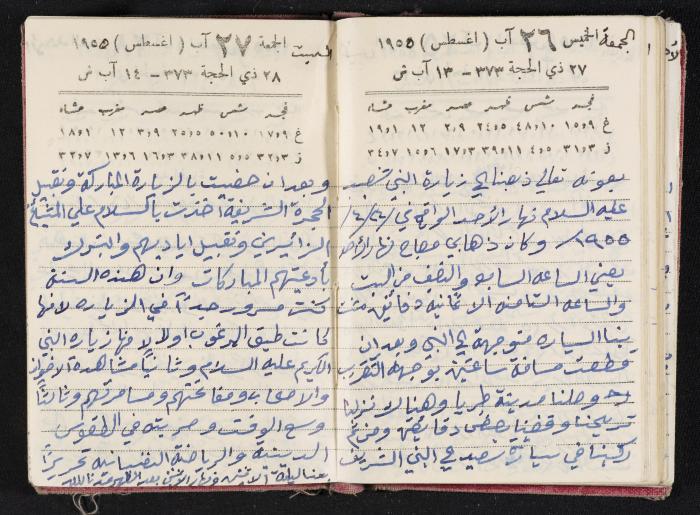 الجمعة الخميس ٢٦ آب ( اغسطس ) ١٩٥٥
٢٧ ذي الحجة ٣٧٣ - ١٣ آب ش
فجر شمس ظهر عصر مغرب عشاء
غ ١٥و٩ ٤٨و١٠ ٢٤و٥ ٢و٩ ١٢ ١٩و١
ز ٣١و٣ ٤و٥ ٣٩و١١ ١٧و٣ ١٥و٦ ٣٤و٧
بعونه تعالى ذهبنا الى زيارة النبي شعيب
عليه السلام نهار الأحد الواقع في
١٩٥٥ وكان ذهابي صباح نهار الأحد
يعني الساعه السابعه والنصف من البيت
والساعه الثامنه الا ثمانيه دقائق مشت
بنا السياره متوجهة الى النبي وبعد ان
قطعت مسافة ساعتين بوجهة التقريب
وصلنا مدينة طبريا وهنا لا نزلنا
تريحنا وقضينا بعض دقائق ومن ثم
ركبنا في سيارة تصعد الى النبي الشريف
السبت الجمعة ٢٧ آب ( اغسطس ) ١٩٥٥
٢٨ ذي الحجة ٣٧٣ - ١٤ آب ش
فجر شمس ظهر عصر مغرب عشاء
غ ١٧و٩ ٥٠و١٠ ٢٥و٥ ٣و٩ ١٢ ١٨و١
ز ٣٢و٣ ٥و٥ ٣٨و١١ ١٦و٣ ١٣و٦ ٣٢و٧
وبعد ان حضيت بالزيارة المباركة وتقبيل
الحجرة الشريفة أخذت بالسلام علي المشايخ
الزائيرين وتقبيل اياديهم والتبرك
بأدعيتهم المباركات وان هذه السنة
كنت مسرور جداً في الزياره لانها
كانت طبق المرغوب اولا لانها زيارة النبي
الكريم عليه السلام وثانياً مشاهدة الاخوان
والاصحاب ومسامرتهم وثالثاً
وسع الوقت وحريته في الطقوس
الدينية والرياضة النفسانيه